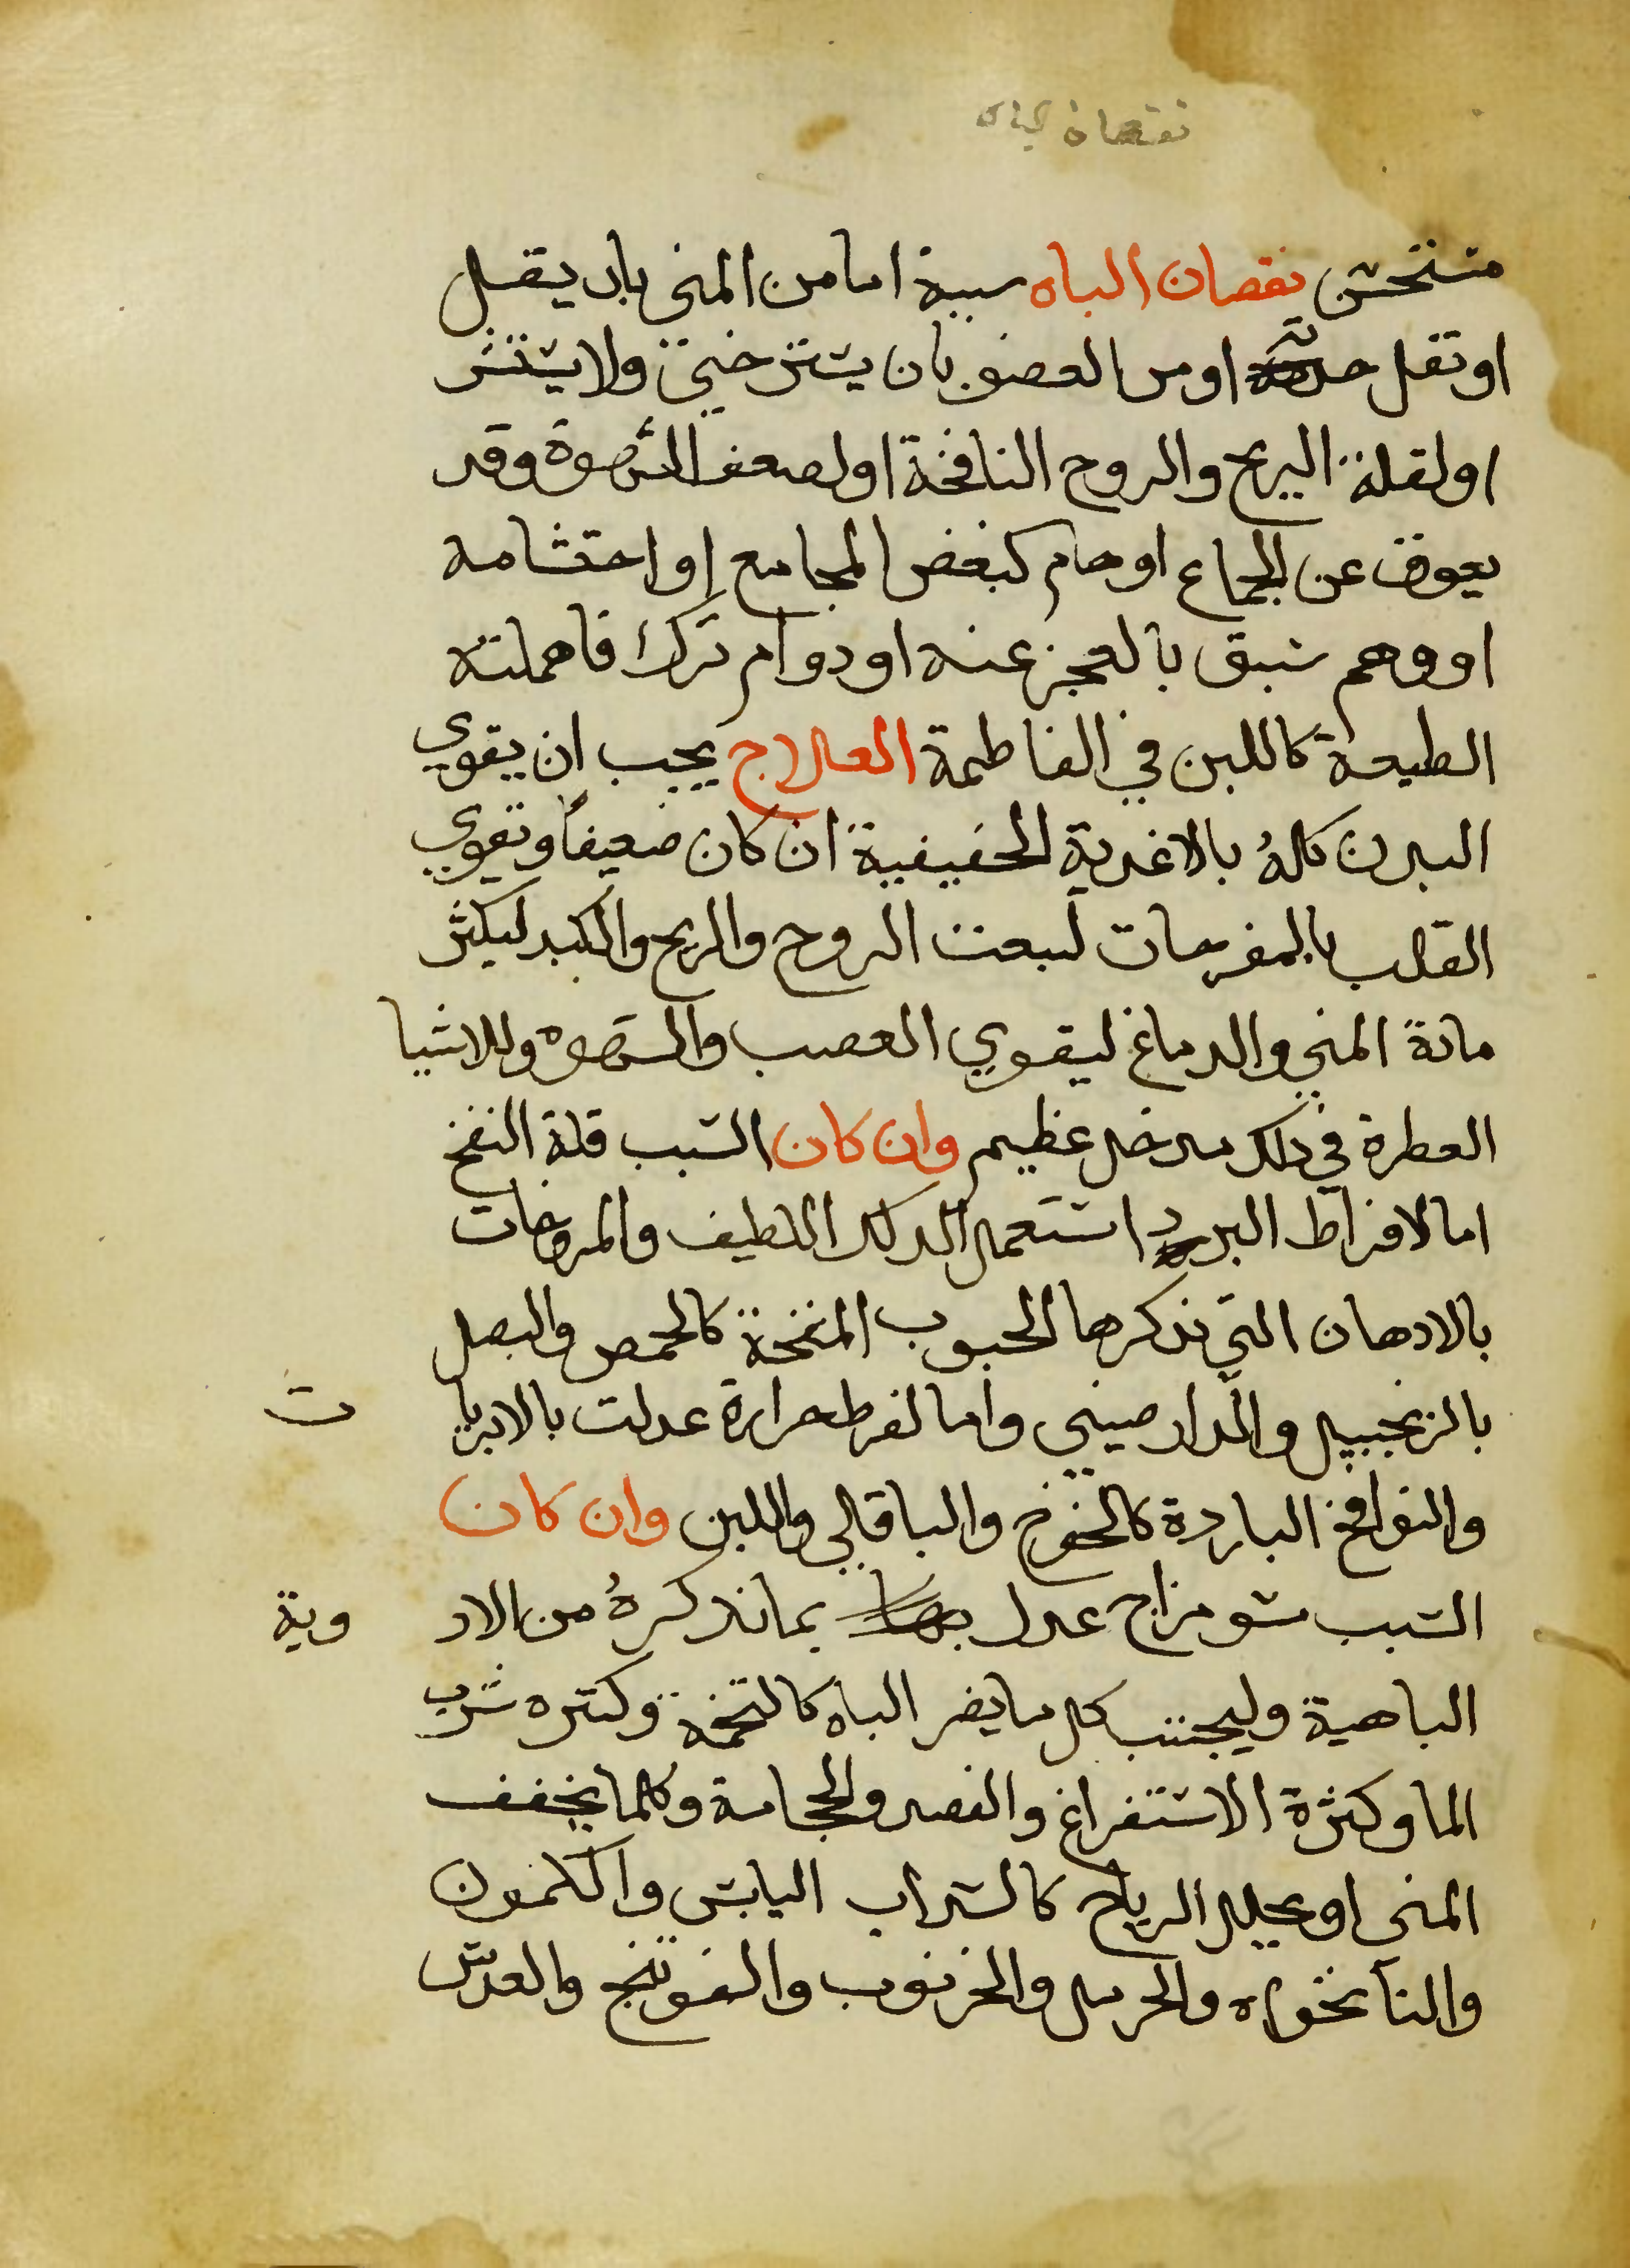 نقصان الباه
متنحش نقصان الباه سببة اما من المني بان يقل
او تقل حدته او من العضو بان يسترخي ولا ينتشر
او لقلة الريح والروح النافخة او لضعف الشهوة وقد
يعوق عن الجماع اوهام كبغض المجامع او احتشامه
او وهم سبق بالعجز عنه او دوام ترك فاهملته
الطبيعة كاللبن في الفاطمة العلاج يجب ان يقوي
البدن كلهُ بالاغذية الحقيقية ان كان ضعيفاً وتقوي
القلب بالمفرحات لبعث الروح والريح والكبد ليكثر
مادة المني والدماغ ليقوي العصب والشهوه وللاشيا
العطرة في ذلك مدخل عظيم وان كان السبب قلة النفخ
اما لافراط البرد استعمل الدلك اللطيف والمروخات
بالادهان التي نذكرها الحبوب المنفخة كالحمص والبصل
بالزنجبيل والدارصيني واما لفرط حرارة عدلت بالابريا ت
والنوافخ الباردة كالخوخ والباقالي واللبن وان كان
السبب سو مزاج عدل بما نذكرهُ من الاد وية
الباهية وليجتنب كل ما يضر الباه كالتخمة وكثره شرب
الما وكثرة الاستفراغ والفصد والحجامة وكلما يجفف
المني او يحلل الرياح كالشراب اليابس والكمون
والنانخواه والحرمل والخرنوب والفوتنج والعدس